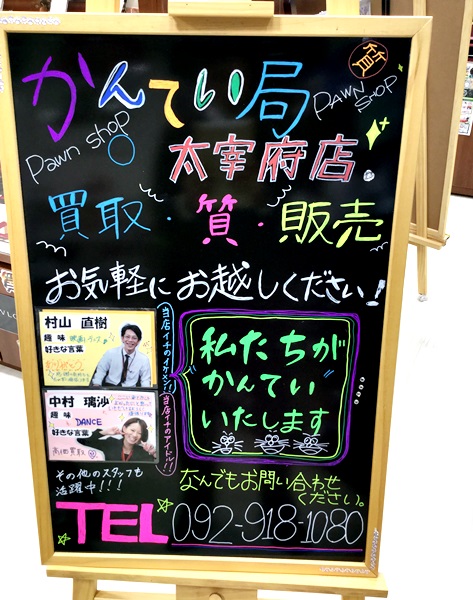 質
かんてい局
PAWN SHOP
Pawn shop
太宰府店
買取・質・販売
お気軽にお越しください!
村山 直樹
趣味
好きな言葉
当店イチのイケメン!!
中村 璃沙
趣味 DANCE
好きな言葉
高価買取
当店イチのアイドル!!
私たちが
かんてい
いたします
その他のスタッフも
活躍中!!!
なんでもお問い合わせ
ください。
TEL 092-918-1080